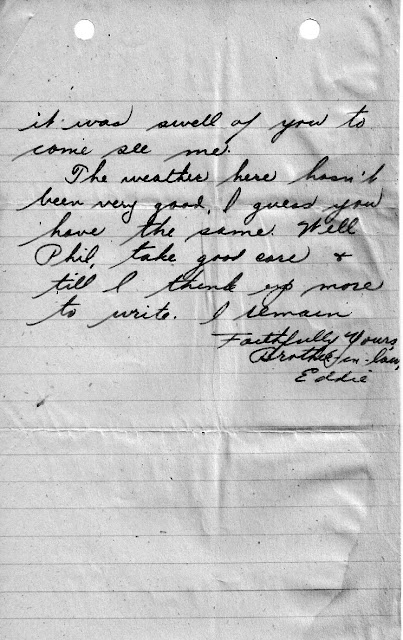 it was swell of you to
come see me.
The weather here hasn't
been very good, I guess you
have the same. Well
Phil, take good care &
till I think up more
to write. I remain
Faithfully Yours
Brother-in-law,
Eddie